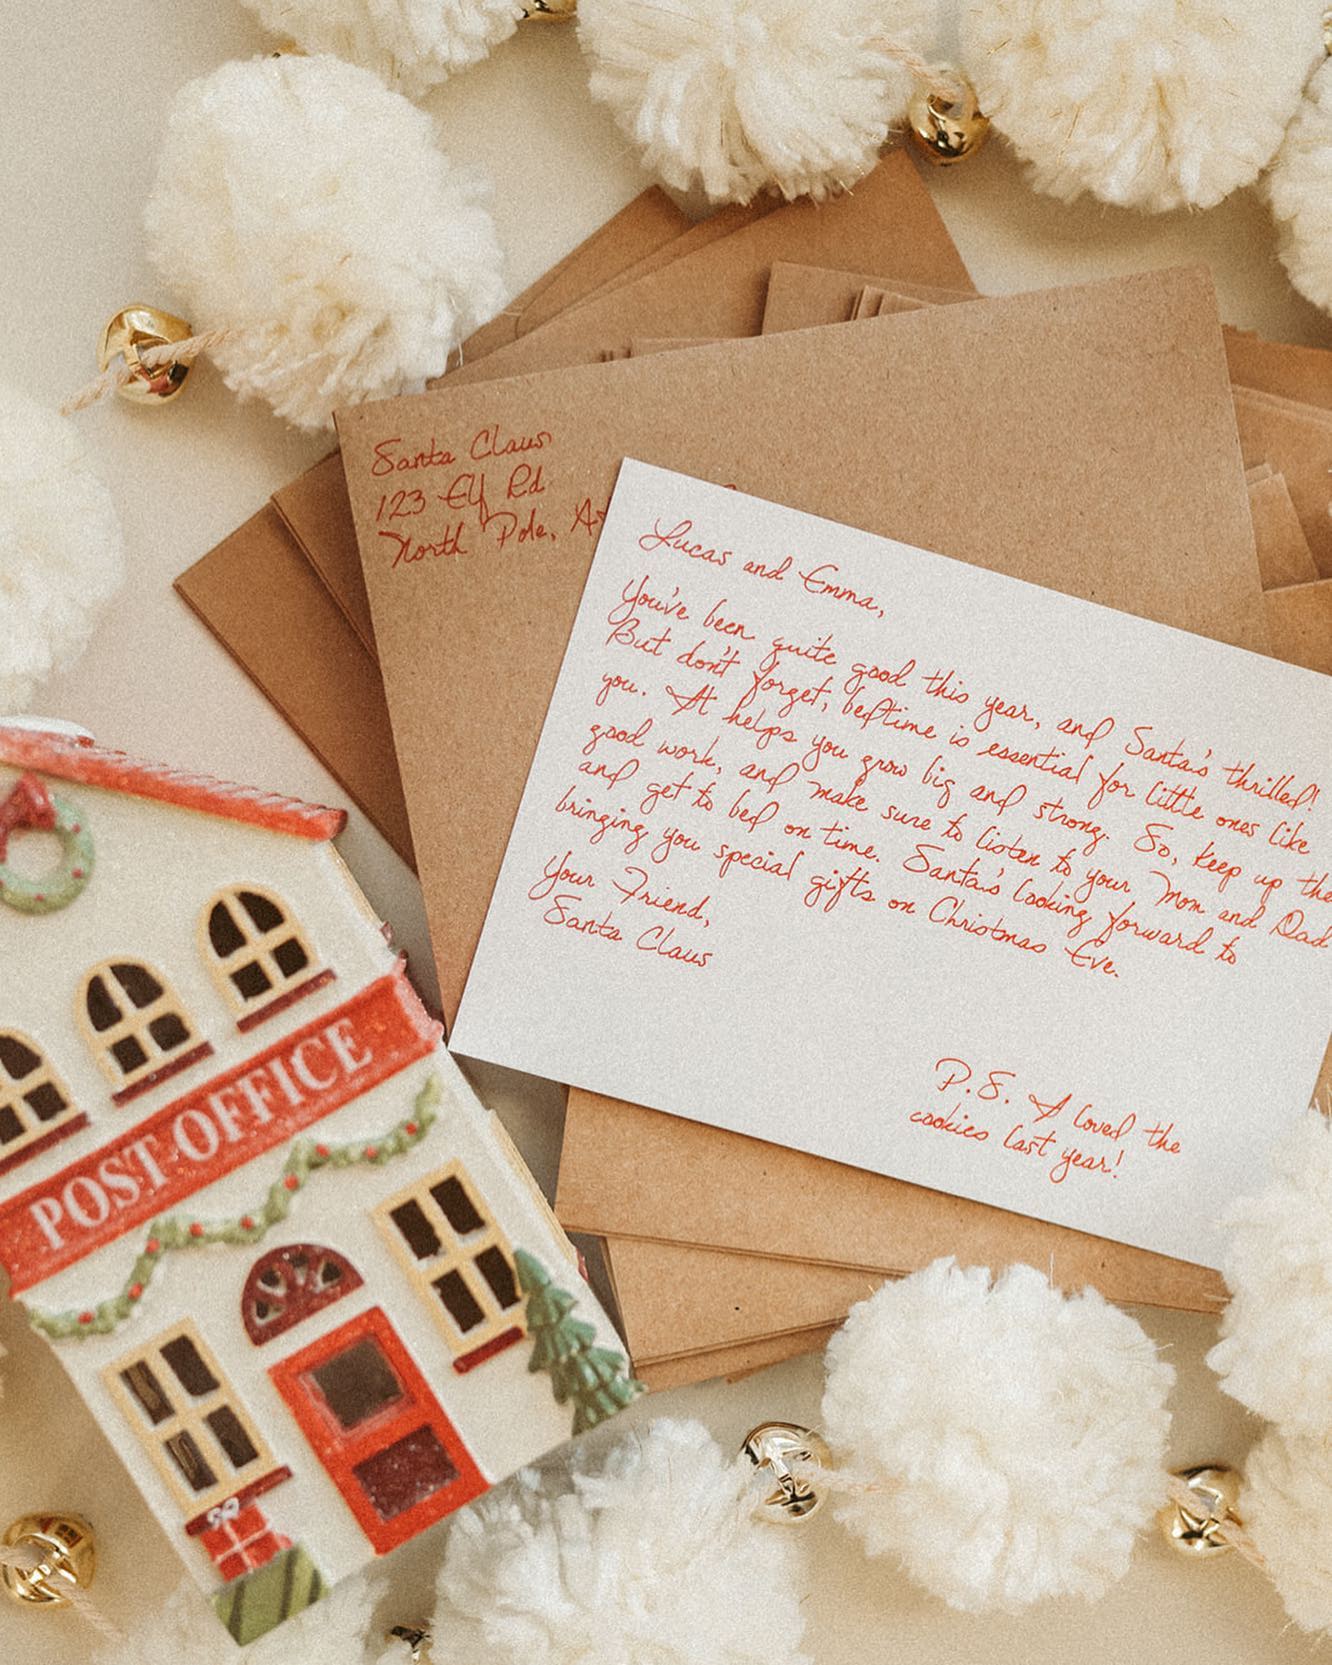 Santa Claus
123 Elf Rd
North Pole,
Lucas and Emma,
You've been quite good this year, and Santa's thrilled!
But don't forget, bedtime is essential for little ones like
you. It helps you grow big and strong. So, keep up the
good work, and make sure to listen to your Mom and Dad
and get to bed on time. Santa's looking forward to
bringing you special gifts on Christmas Eve.
Your Friend,
Santa Claus
P.S. I loved the
cookies last year!
POST OFFICE